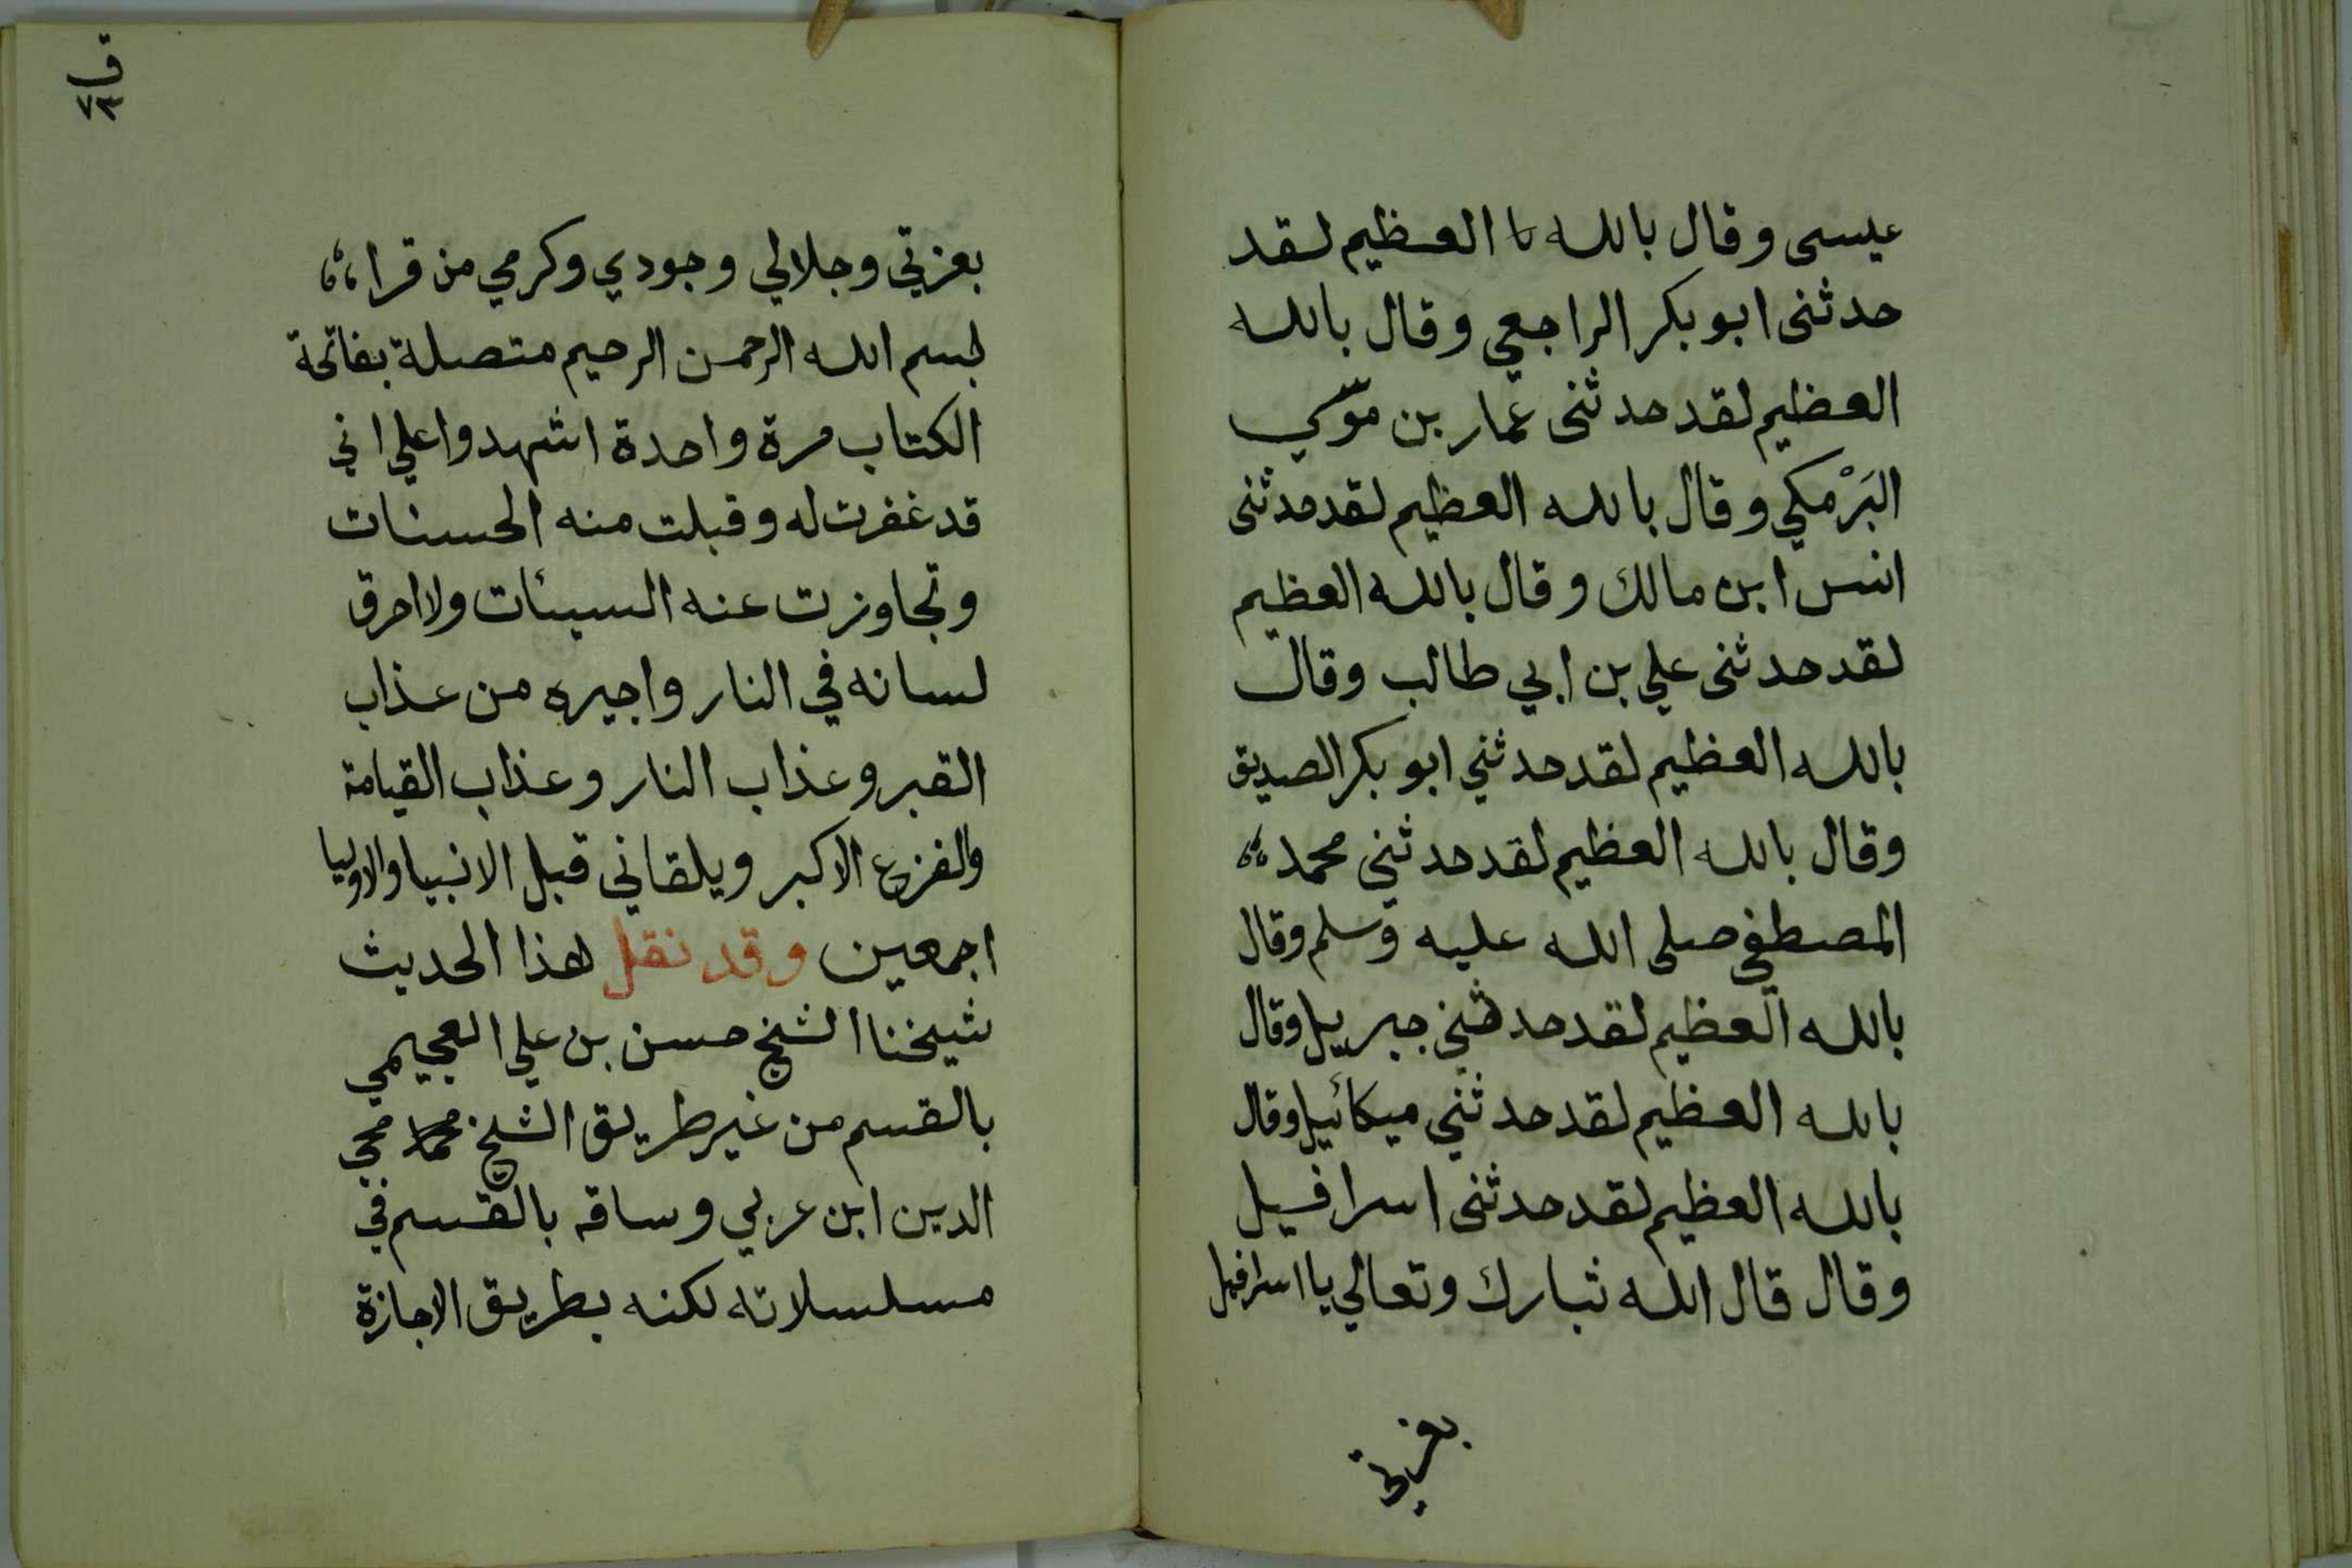 عيسى وقال بالله العظيم لقد
حدثنى ابو بكر الراجعي وقال بالله
العظيم لقد حدثنى عمار بن موسي
البَرْمكي وقال بالله العظيم لقد حدثنى
انس ابن مالك وقال بالله العظيم
لقد حدثنى علي بن ابي طالب وقال
بالله العظيم لقد حدثني ابو بكر الصديق
وقال بالله العظيم لقد حدثني محمد
المصطفي صلى الله عليه وسلم وقال
بالله العظيم لقد حدثني جبريل وقال
بالله العظيم لقد حدثني ميكائيل وقال
بالله العظيم لقد حدثنى اسرافيل
وقال قال الله تبارك وتعالي يا اسرافيل
بعزتي
ق
بعزتي وجلالي وجودي وكرمي من قراء
بسم الله الرحمن الرحيم متصلة بفاتحة
الكتاب مرة واحدة اشهدوا علي اني
قد غفرت له وقبلت منه الحسنات
وتجاوزت عنه السيئات ولا احرق
لسانه في النار واجيره من عذاب
القبر وعذاب النار وعذاب القيامة
والفزع الاكبر ويلقاني قبل الانبيا والاوليا
اجمعين وقد نقل هذا الحديث
شيخنا الشيخ حسن بن علي العجيمي
بالقسم من غير طريق الشيخ محي
الدين ابن عربي وساقه بالقسم في
مسلسلاته لكنه بطريق الاجازة